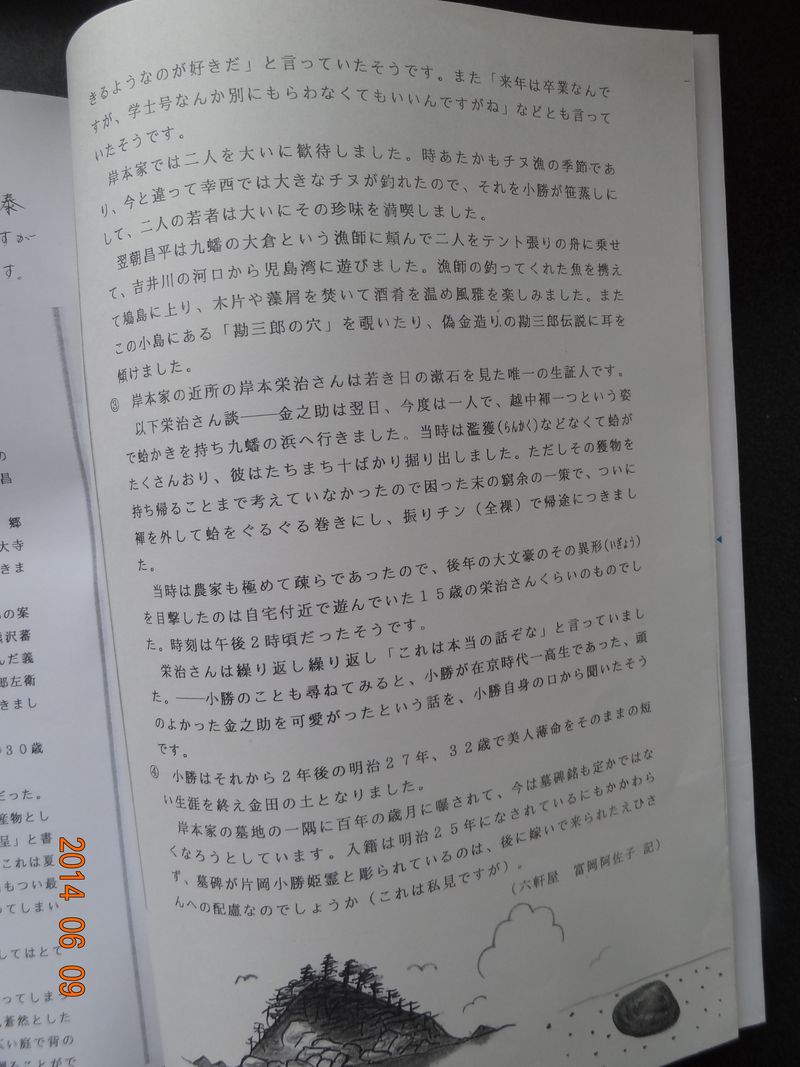 きるようなのが好きだ」と言っていたそうです。また「来年は卒業なんで
すが、学士号なんか別にもらわなくてもいいんですがね」などとも言って
いたそうです。
岸本家では二人を大いに歓待しました。時あたかもチヌ漁の季節であ
り、今と違って幸西では大きなチヌが釣れたので、それを小勝が笹蒸しに
して、二人の若者は大いにその珍味を満喫しました。
翌朝昌平は九蟠の大倉という漁師に頼んで二人をテント張りの舟に乗せ
て、吉井川の河口から児島湾に遊びました。漁師の釣ってくれた魚を携え
て鳩島に上り、木片や藻屑を焚いて酒肴を温め風雅を楽しみました。また
この小島にある「勘三郎の穴」を覗いたり、偽金造りの勘三郎伝説に耳を
傾けました。
③ 岸本家の近所の岸本栄治さんは若き日の漱石を見た唯一の生証人です。
以下栄治さん談――金之助は翌日、今度は一人で、越中褌一つという姿
で蛤かきを持ち九蟠の浜へ行きました。当時は濫獲(らんかく)などなくて蛤が
たくさんおり、彼はたちまち十ばかり掘り出しました。ただしその獲物を
持ち帰ることまで考えていなかったので困った末の窮余の一策で、ついに
褌を外して蛤をぐるぐる巻きにし、振りチン(全裸)で帰途につきまし
た。
当時は農家も極めて疎らであったので、後年の大文豪のその異形(いぎょう)
を目撃したのは自宅付近で遊んでいた15歳の栄治さんくらいのものでし
た。時刻は午後2時頃だったそうです。
栄治さんは繰り返し繰り返し「これは本当の話ぞな」と言っていまし
た。――小勝のことも尋ねてみると、小勝が在京時代一高生であった、頭
のよかった金之助を可愛がったという話を、小勝自身の口から聞いたそう
です。
④ 小勝はそれから2年後の明治27年、32歳で美人薄命をそのままの短
い生涯を終え金田の土となりました。
岸本家の墓地の一隅に百年の歳月に曝されて、今は墓碑銘も定かではな
くなろうとしています。入籍は明治25年になされているにもかかわら
ず、墓碑が片岡小勝姫霊と彫られているのは、後に嫁いで来られたえひさ
んへの配慮なのでしょうか(これは私見ですが)。
(六軒屋 富岡阿佐子 記)
泰
すが
す。
の
昌
郷
大寺
きま
もの案
熊沢蕃
んだ義
郎左衛
きまし
30歳
だった。
産物とし
呈」と書
これは夏
もつい最
ってしまい
してはとて
ってしまっ
蒼然とした
広い庭で背の
ることがで
2014 06 09